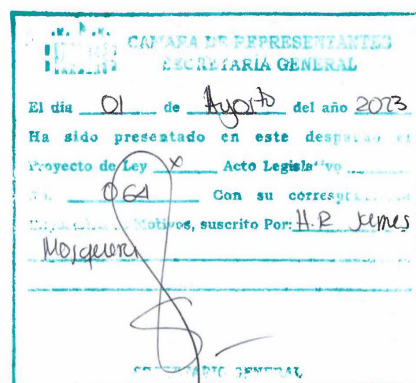 CAMARA DE REPRESENTANTES
SECRETARÍA GENERAL
El día 01 de Agosto del año 2023
Ha sido presentado en este despacho el
Proyecto de Ley X Acto Legislativo
No. 064 Con su correspondiente
Motivos, suscrito Por: H.R James
Mosquera
SECRETARIO GENERAL